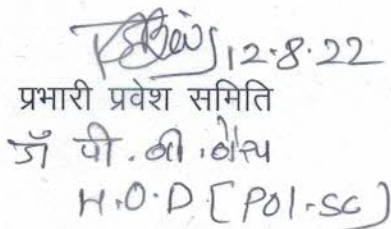 12.8.22
प्रभारी प्रवेश समिति
डॉ पी.बी.वैश्य
H.O.D [POl-SC]